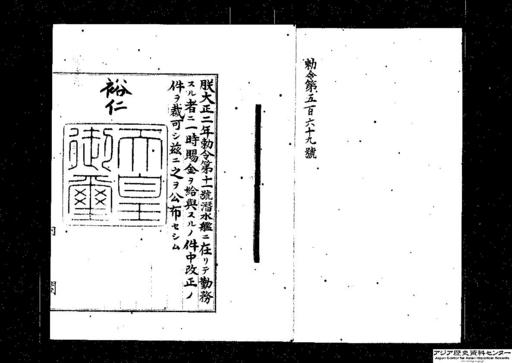 勅令第五百六十九號
朕大正二年勅令第十一號潜水艦ニ在リテ勤務
スル者ニ一時賜金ヲ給與スルノ件中改正ノ
件ヲ裁可シ茲ニ之ヲ公布セシム
裕仁
天皇
御璽
内
閣
アジア歴史資料センター
Japan Center for Asian Historical Records